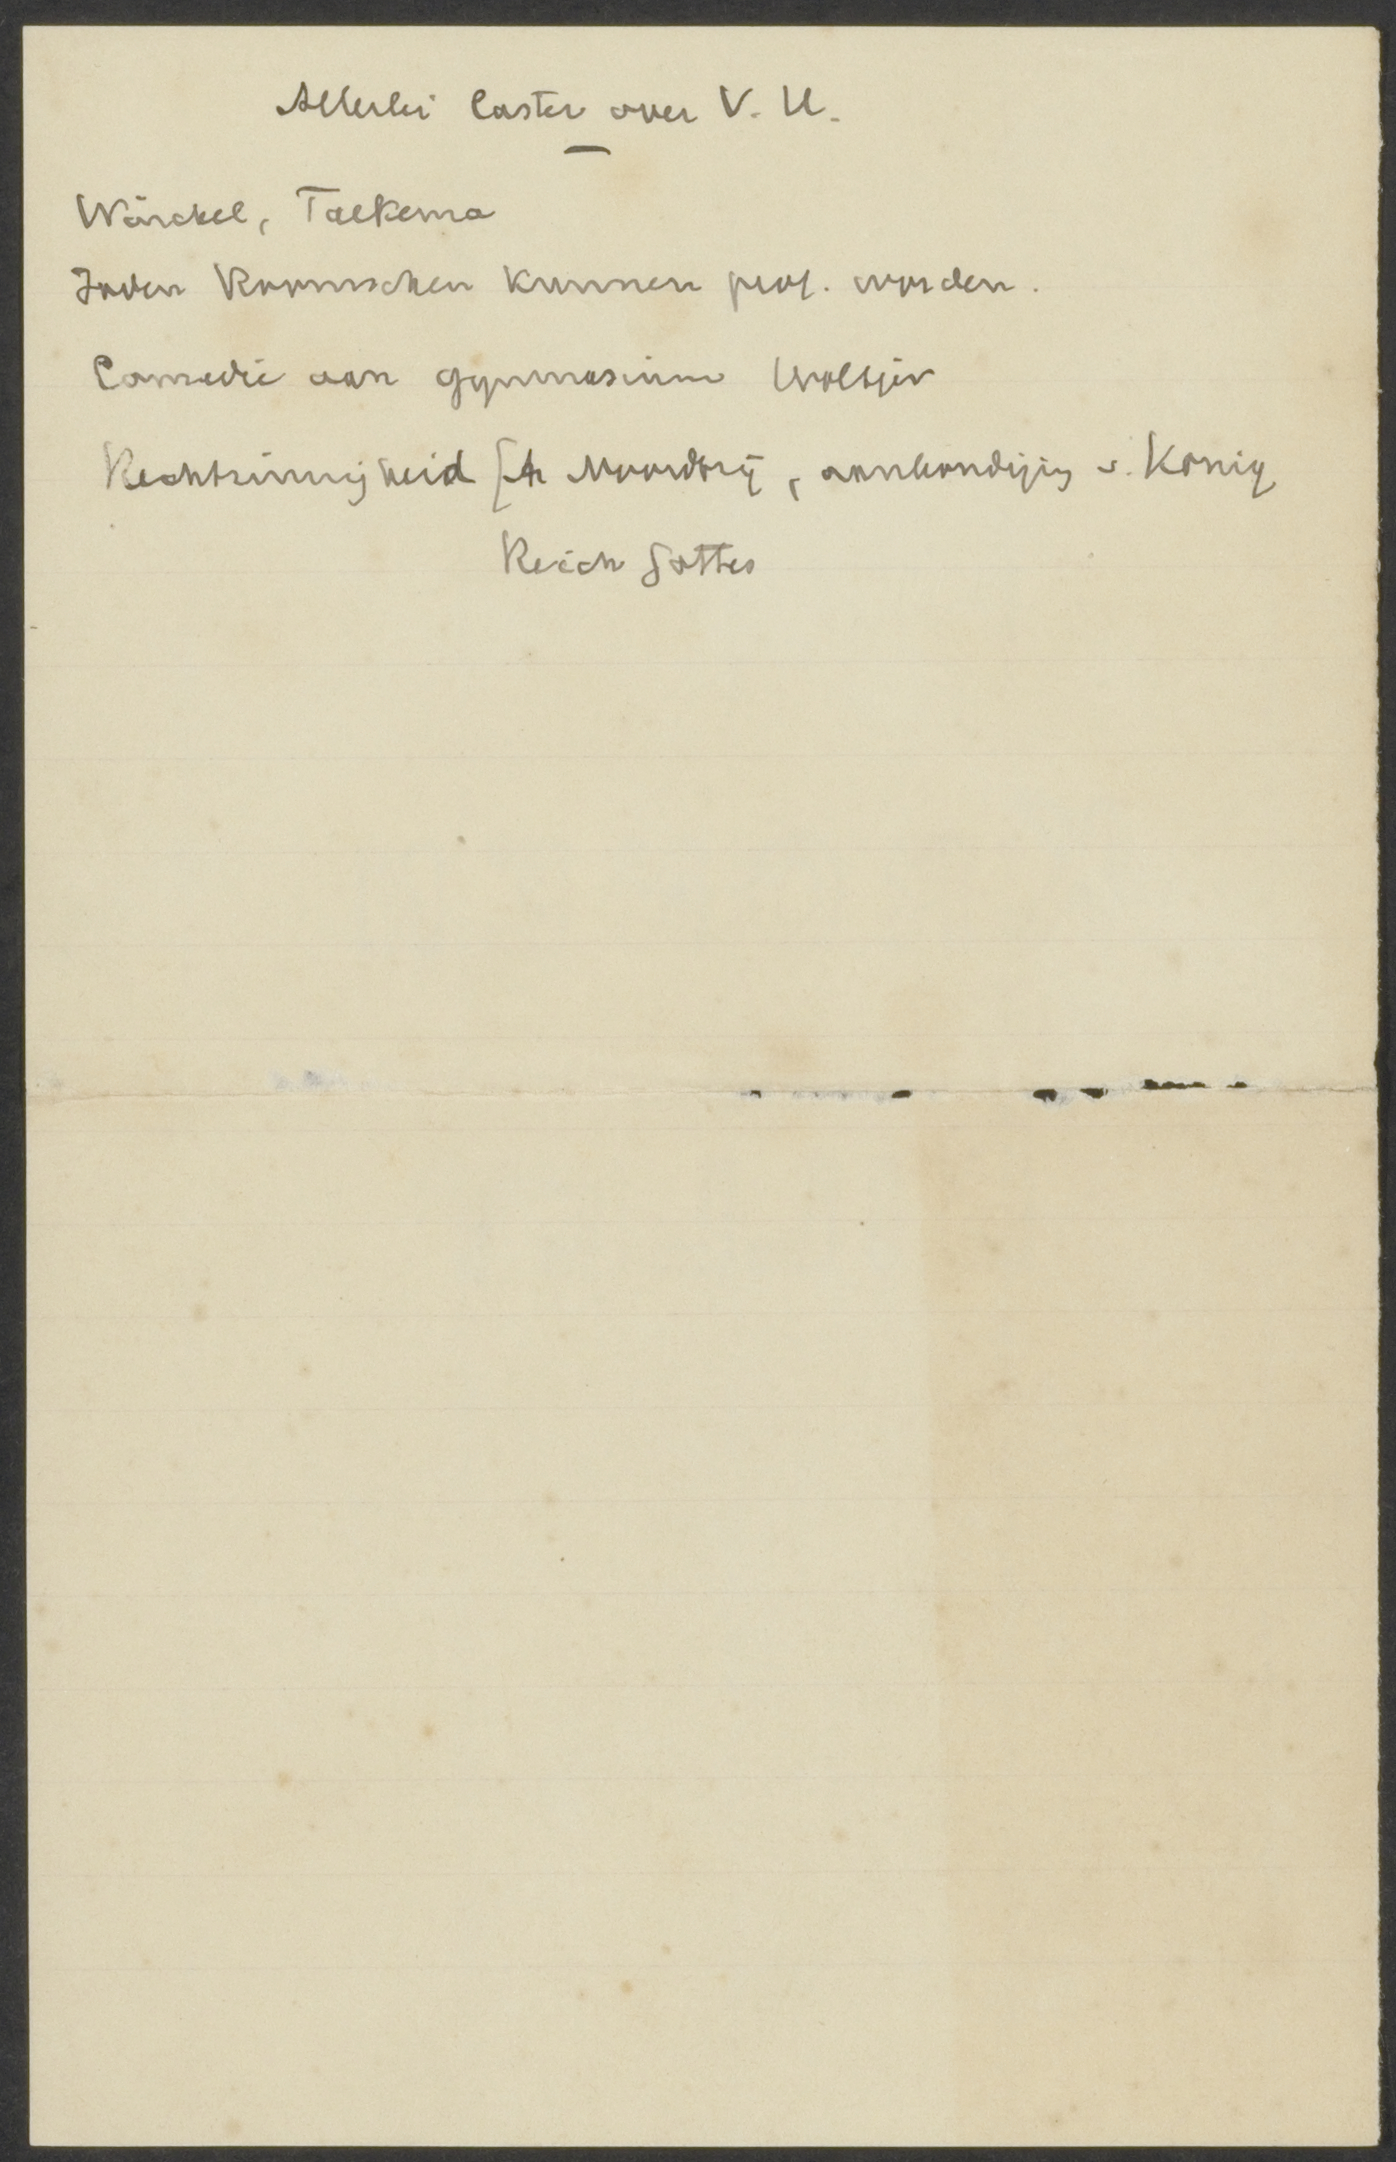 Allerlei laster over V. U.
Wörckel, Talkema
Joden Roomschen kunnen prof. worden.
Comedie aan gymnasium Woltjer
Rechtzinnigheid [ Noordtzij, aankondiging v. König
Reich Gottes